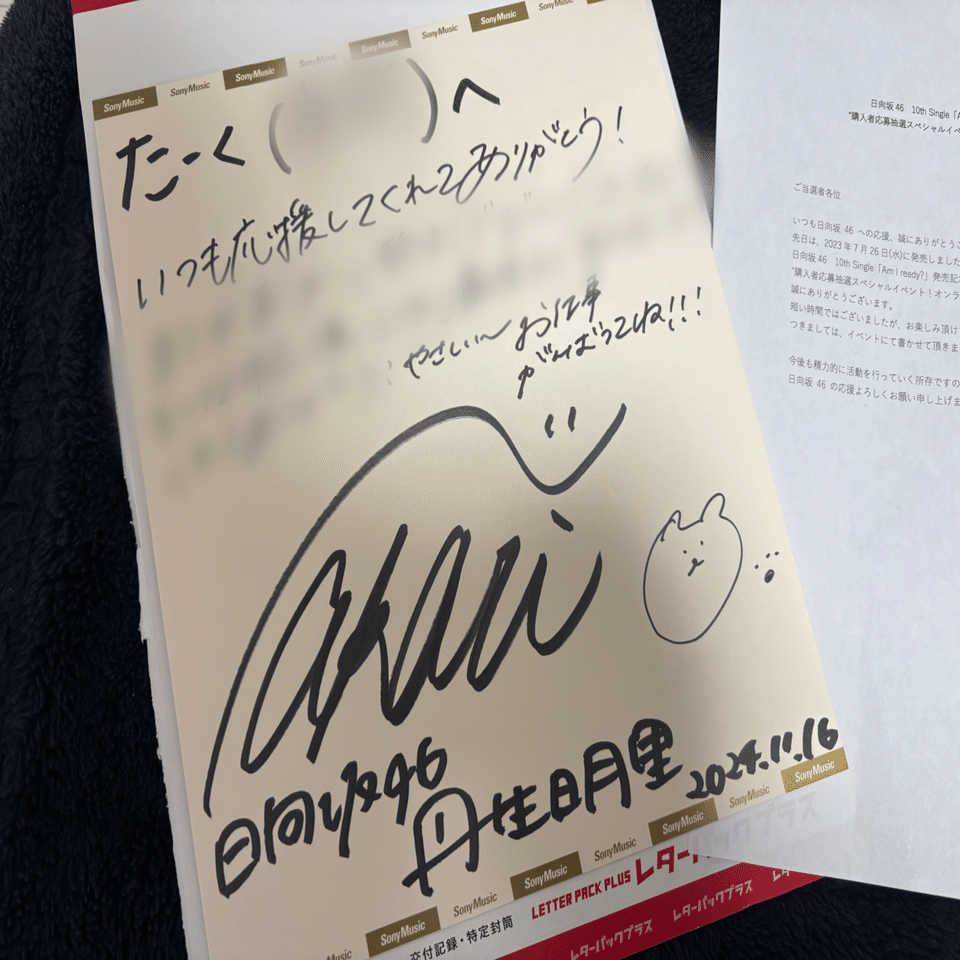 SonyMusic SonyMusic SonyMusic SonyMusic SonyMusic SonyMusic SonyMusic SonyMusic
たーく( )へ
いつも応援してくれてありがとう!
やさしい〜お仕事
がんばってね!!!
日向坂46
丹生明里
2024.11.16
SonyMusic SonyMusic SonyMusic SonyMusic SonyMusic SonyMusic
LETTER PACK PLUS レターパックプラス
交付記録・特定封筒 レターパックプラス レターパックプラス
日向坂 46 10th Single「A
"購入者応募抽選スペシャルイベ
ご当選者各位
いつも日向坂 46 への応援、誠にありがとうご
先日は、2023年7月26日(水)に発売しました
日向坂 46 10th Single「Am I ready?」発売記
"購入者応募抽選スペシャルイベント!オンラ
誠にありがとうございます。
短い時間ではございましたが、お楽しみ頂け
つきましては、イベントにて書かせて頂きま
今後も精力的に活動を行っていく所存ですの
日向坂 46 の応援よろしくお願い申し上げま